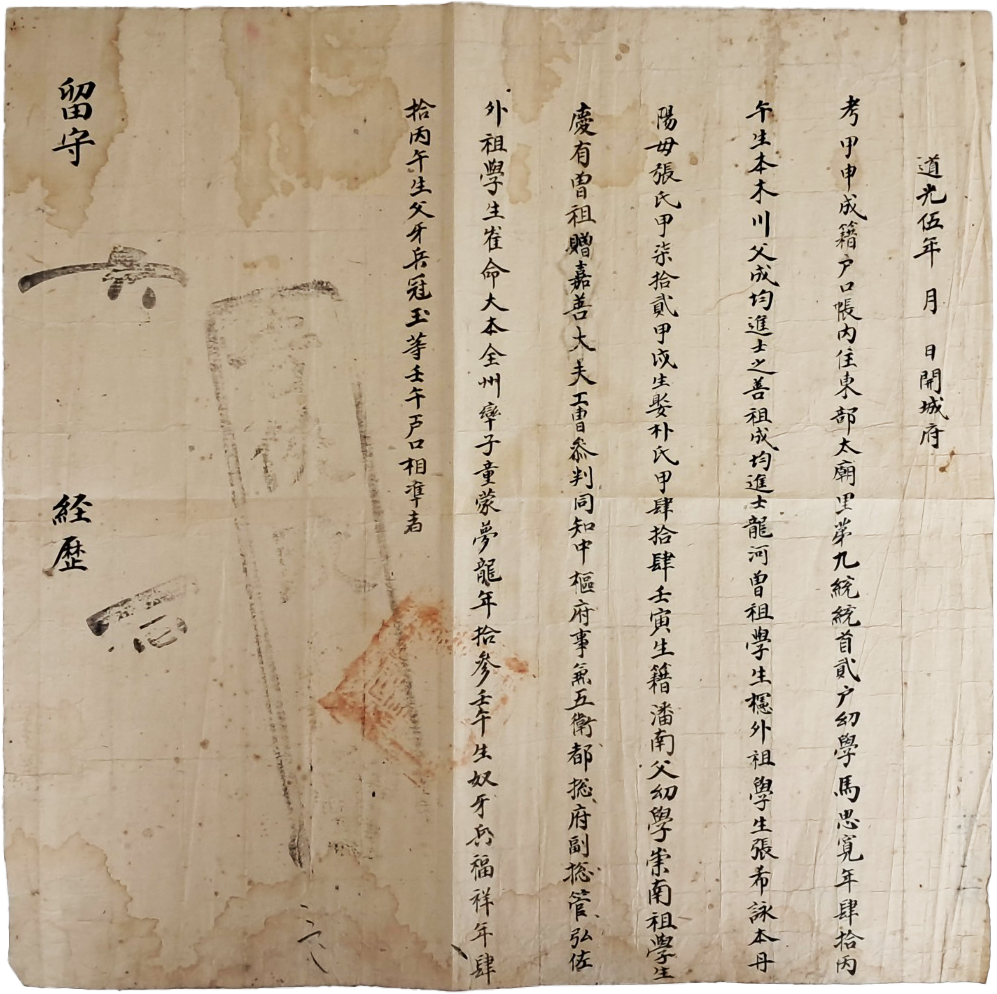 道光伍年 月 日開城府
考甲申成籍户口帳内住東部太廟里第九統統首貳户幼學馬思寬年肆拾丙
午生本木川父成均進士之善祖成均進士龍河曽祖學生檍外祖學生張希詠本丹
陽母張氏甲柒拾貳甲戌生娶朴氏甲肆拾肆壬寅生籍潘南父幼學崇南祖學生
慶有曽祖贈嘉善大夫工曹叅判同知中樞府事兼五衛都摠府副摠管弘佐
外祖學生崔命大本全州率子童蒙夢龍年拾參壬午生奴牙兵福祥年肆
拾丙午生父牙兵冠玉等壬午户口相凖者
留守
経歷